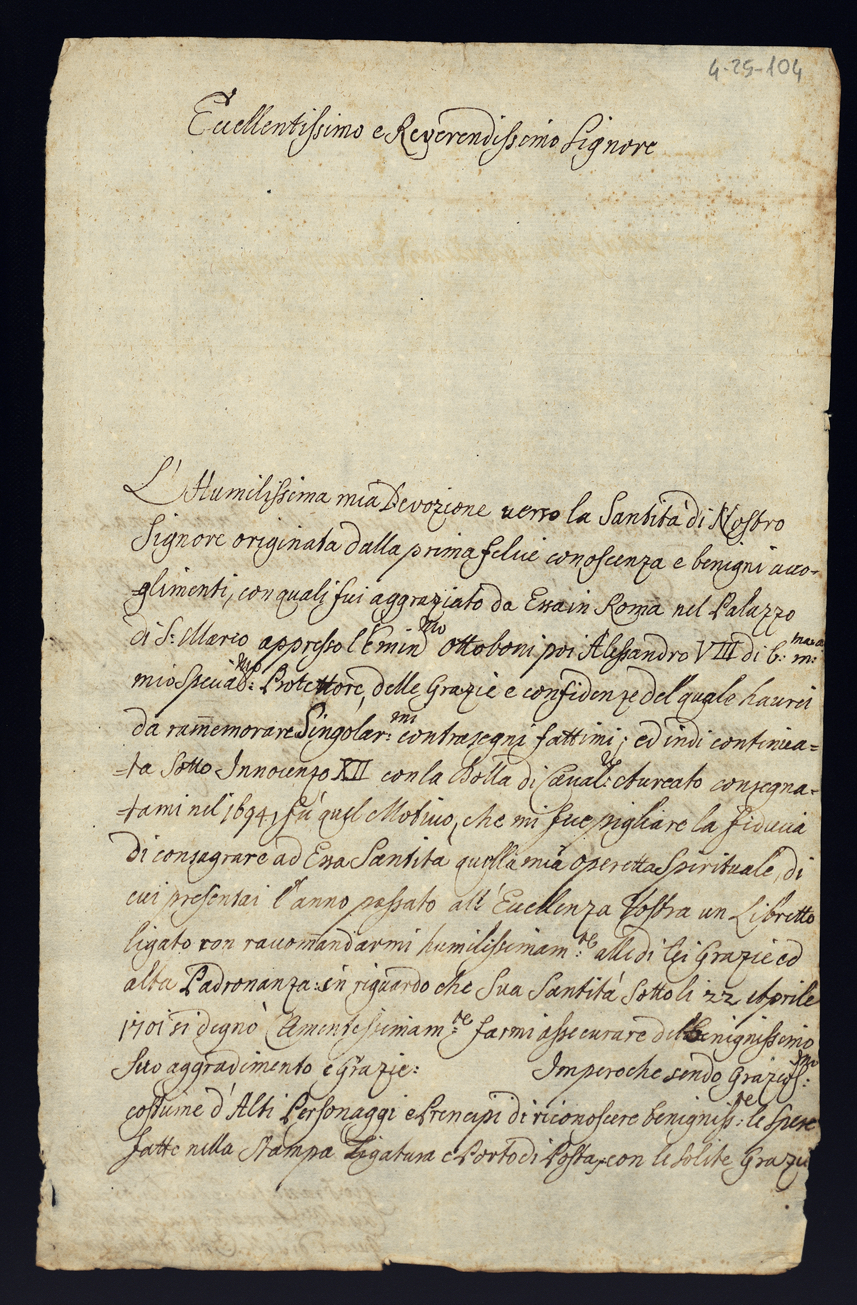 4-25-104
Eccellentissimo e Reverendissimo Signore
L'Humilissima mia Devozione verso la Santità di Nostro
Signore originata dalla prima felice conoscenza e benigni acco-
glimenti, con quali fui aggraziato da Essa in Roma nel Palazzo
di S: Marco appresso l'Emin:mo Ottoboni poi Alessandro VIII di b: m:
mio Special:mo Protettore, delle Grazie e confidenze del quale haurei
da ram̃emorare Singolar:mi contrasegni fattimi; ed indi continua=
=ta Sotto Innocenzo XII con la Bolla di Caval: Aureato consegna=
=tami nel 1694, fù quel Motivo, che mi fece pigliare la fiducia
di consagrare ad Essa Santità quella mia operetta Spirituale, di
cui presentai l'anno passato all'Eccellenza Vostra un Libretto
ligato con raccom̃andarmi humilissimam:te alle di Lei Grazie ed
alta Padronanza: in riguardo che Sua Santità Sotto li 22 Aprile
1701 si degnò Clementissimam:te farmi assecurare del benignissimo
Suo aggradimento e Grazie: Imperoche sendo Grazios:mo
costume d'Alti Personaggi e Prencipi di riconoscere benigniss:te le spese
fatte nella Stampa Ligatura e Porto di Posta, con le solite Grazie